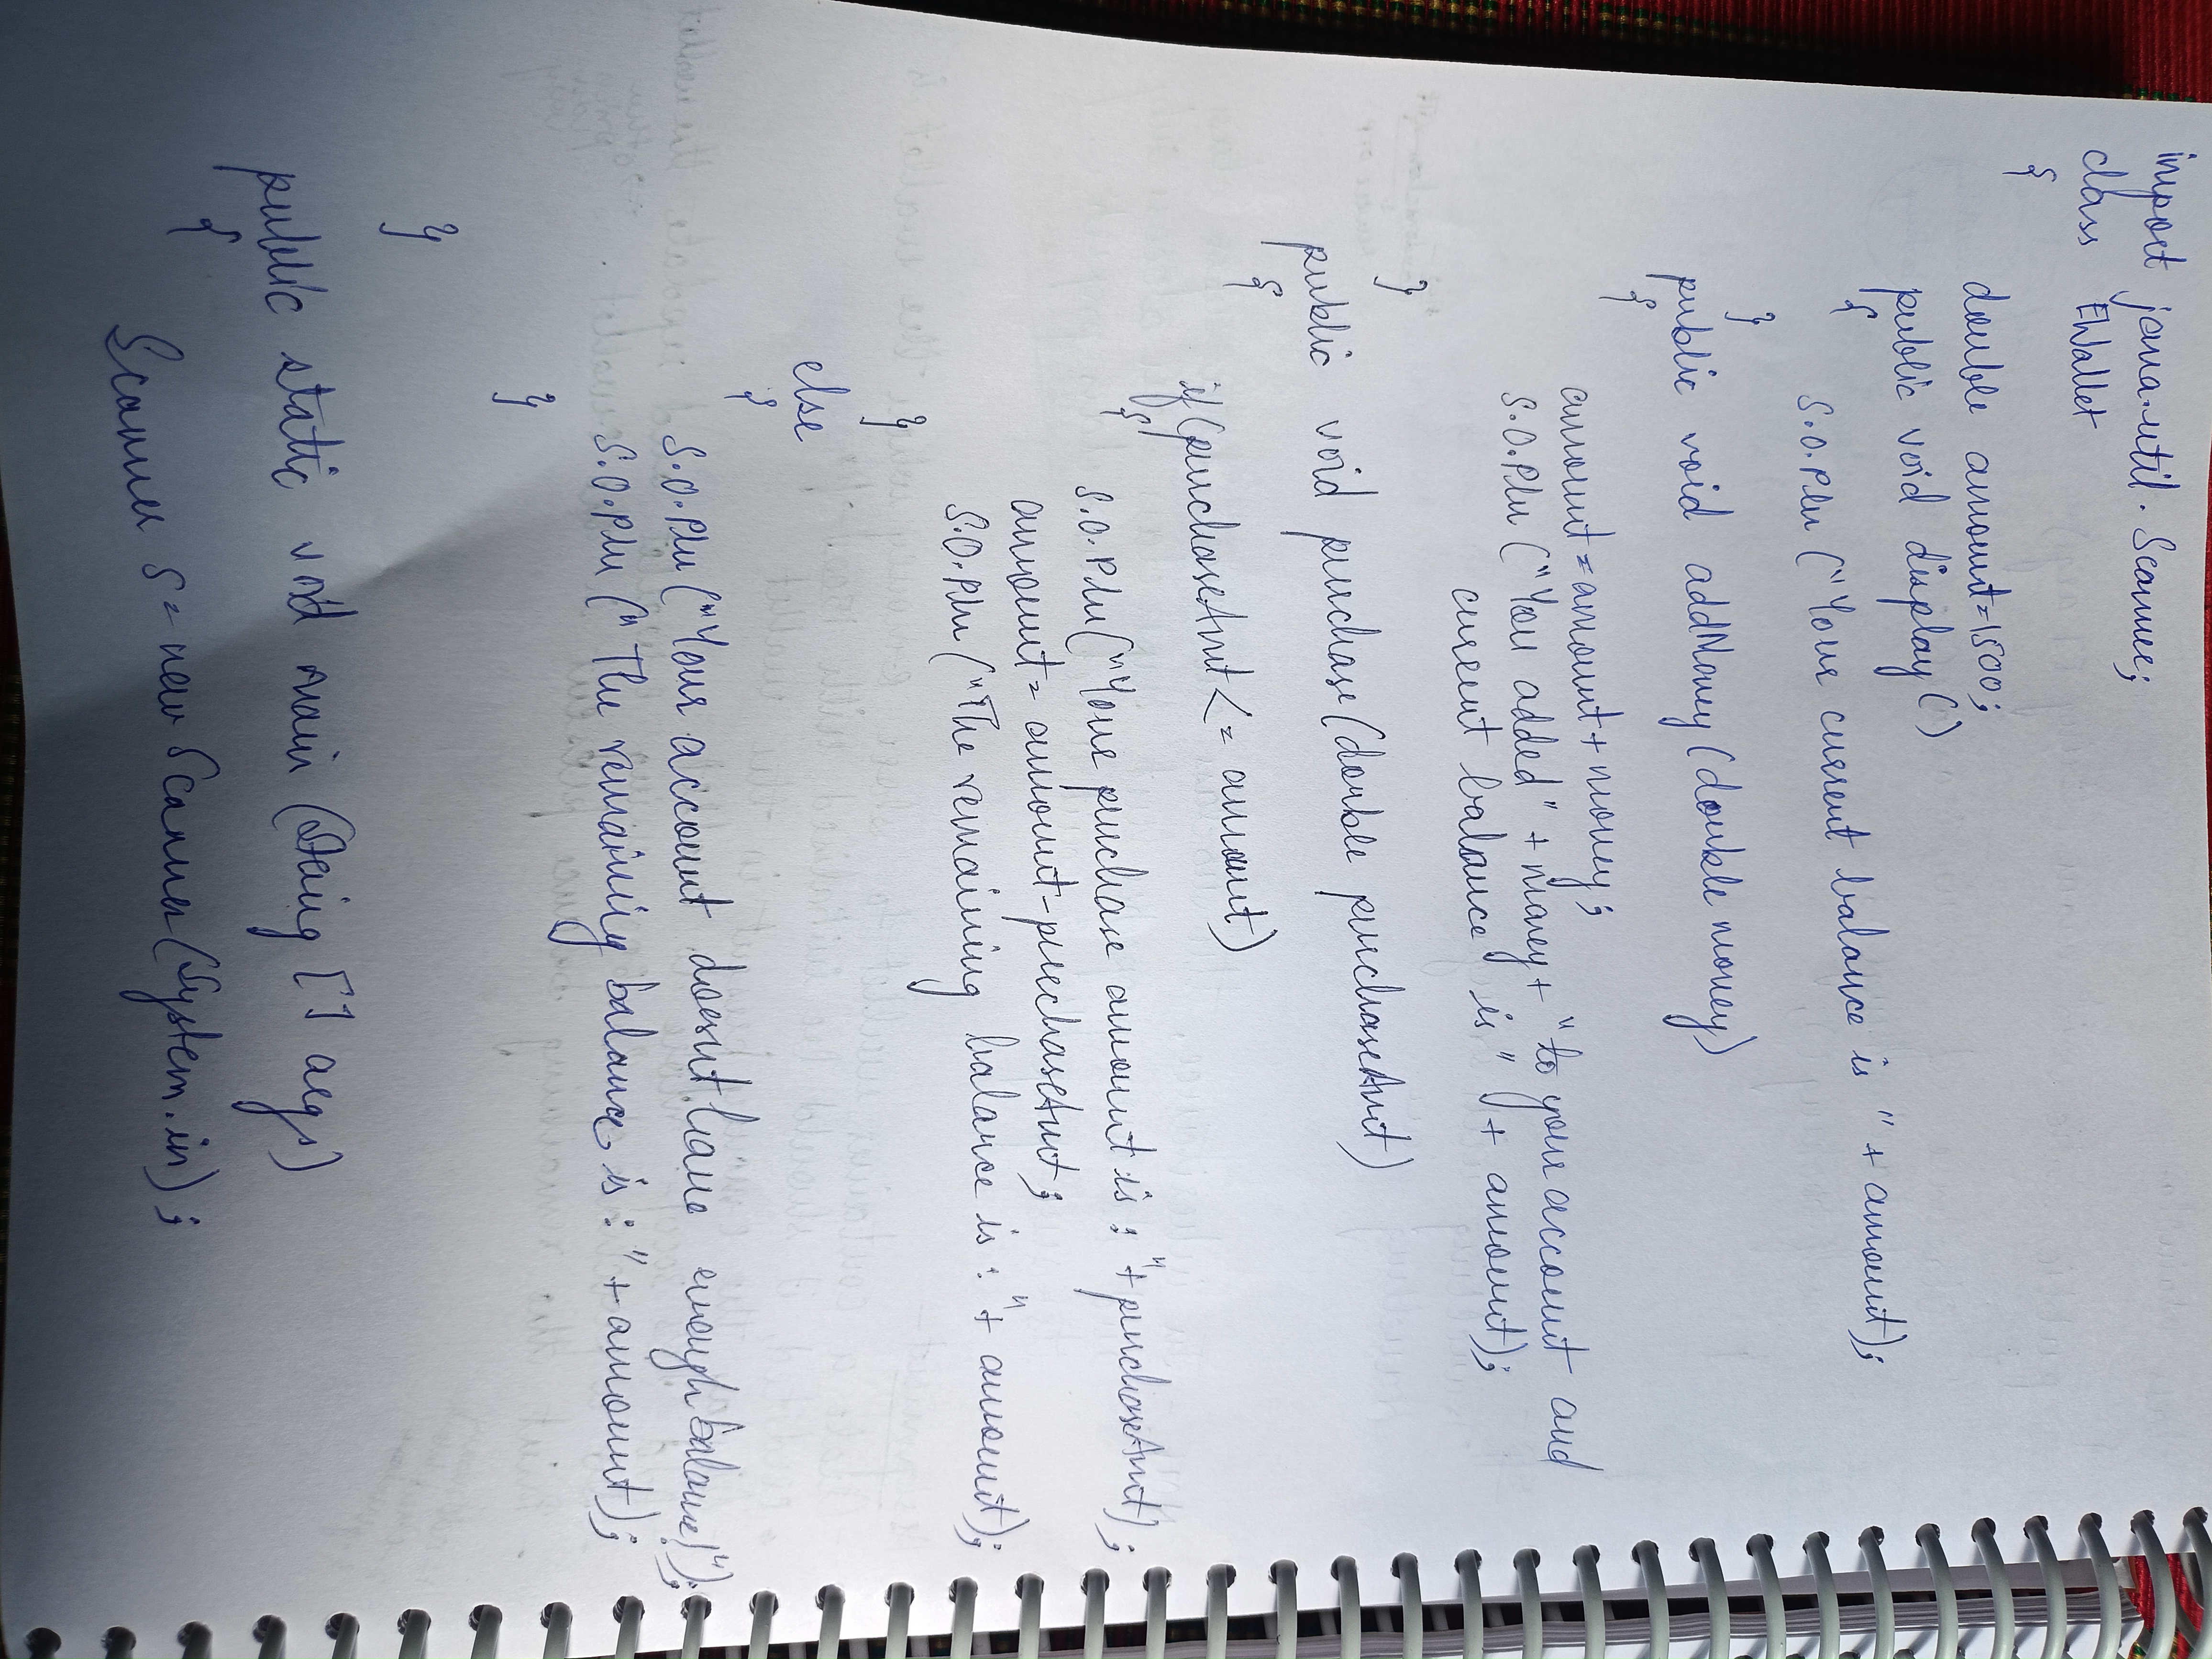 import java.util.Scanner;
class EWallet
{
double amount=1500;
public void display()
{
S.O.Pln("Your current balance is "+amount);
}
public void addMoney(double money)
{
amount=amount+money;
S.O.Pln("You added"+money+"to your account and
current balance is"+amount);
}
public void purchase(double purchaseAmt)
{
if(purchaseAmt<=amount)
{
S.O.Pln("Your purchase amount is:"+purchaseAmt);
amount=amount-purchaseAmt;
S.O.Pln("The remaining balance is:"+amount);
}
else
{
S.O.Pln("Your account doesnt have enough balance!");
S.O.Pln("The remaining balance is:"+amount);
}
}
public static void main(String [] args)
{
Scanner s=new Scanner(System.in);